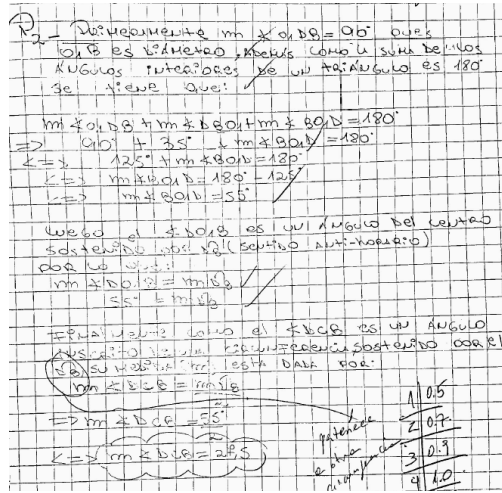 P2- Primeramente m∡O₁DB=90° pues
O₁B es diámetro, además como la suma de los
ángulos interiores de un triángulo es 180°
se tiene que:
m∡O₁DB + m∡DBO₁ + m∡BO₁D = 180°
=> 90° + 35° + m∡BO₁D = 180°
<=> 125° + m∡BO₁D = 180°
<=> m∡BO₁D = 180° - 125°
<=> m∡BO₁D = 55°
Luego el ∡DO₁B es un ángulo del centro
sostenido por DB (sentido anti-horario)
por lo
m∡DO₁B = mDB
55° = mDB
Finalmente como el ∡DCB es un ángulo
inscrito circunferencia sostenido por el
DB su medida esta dada por:
m∡DCB = mDB
=> m∡DCB = 55°
2
<=> m∡DCB = 27,5
pertenece
a otra
circunferencia
1 0.5
2 0.7
3 0.9
4 1.0